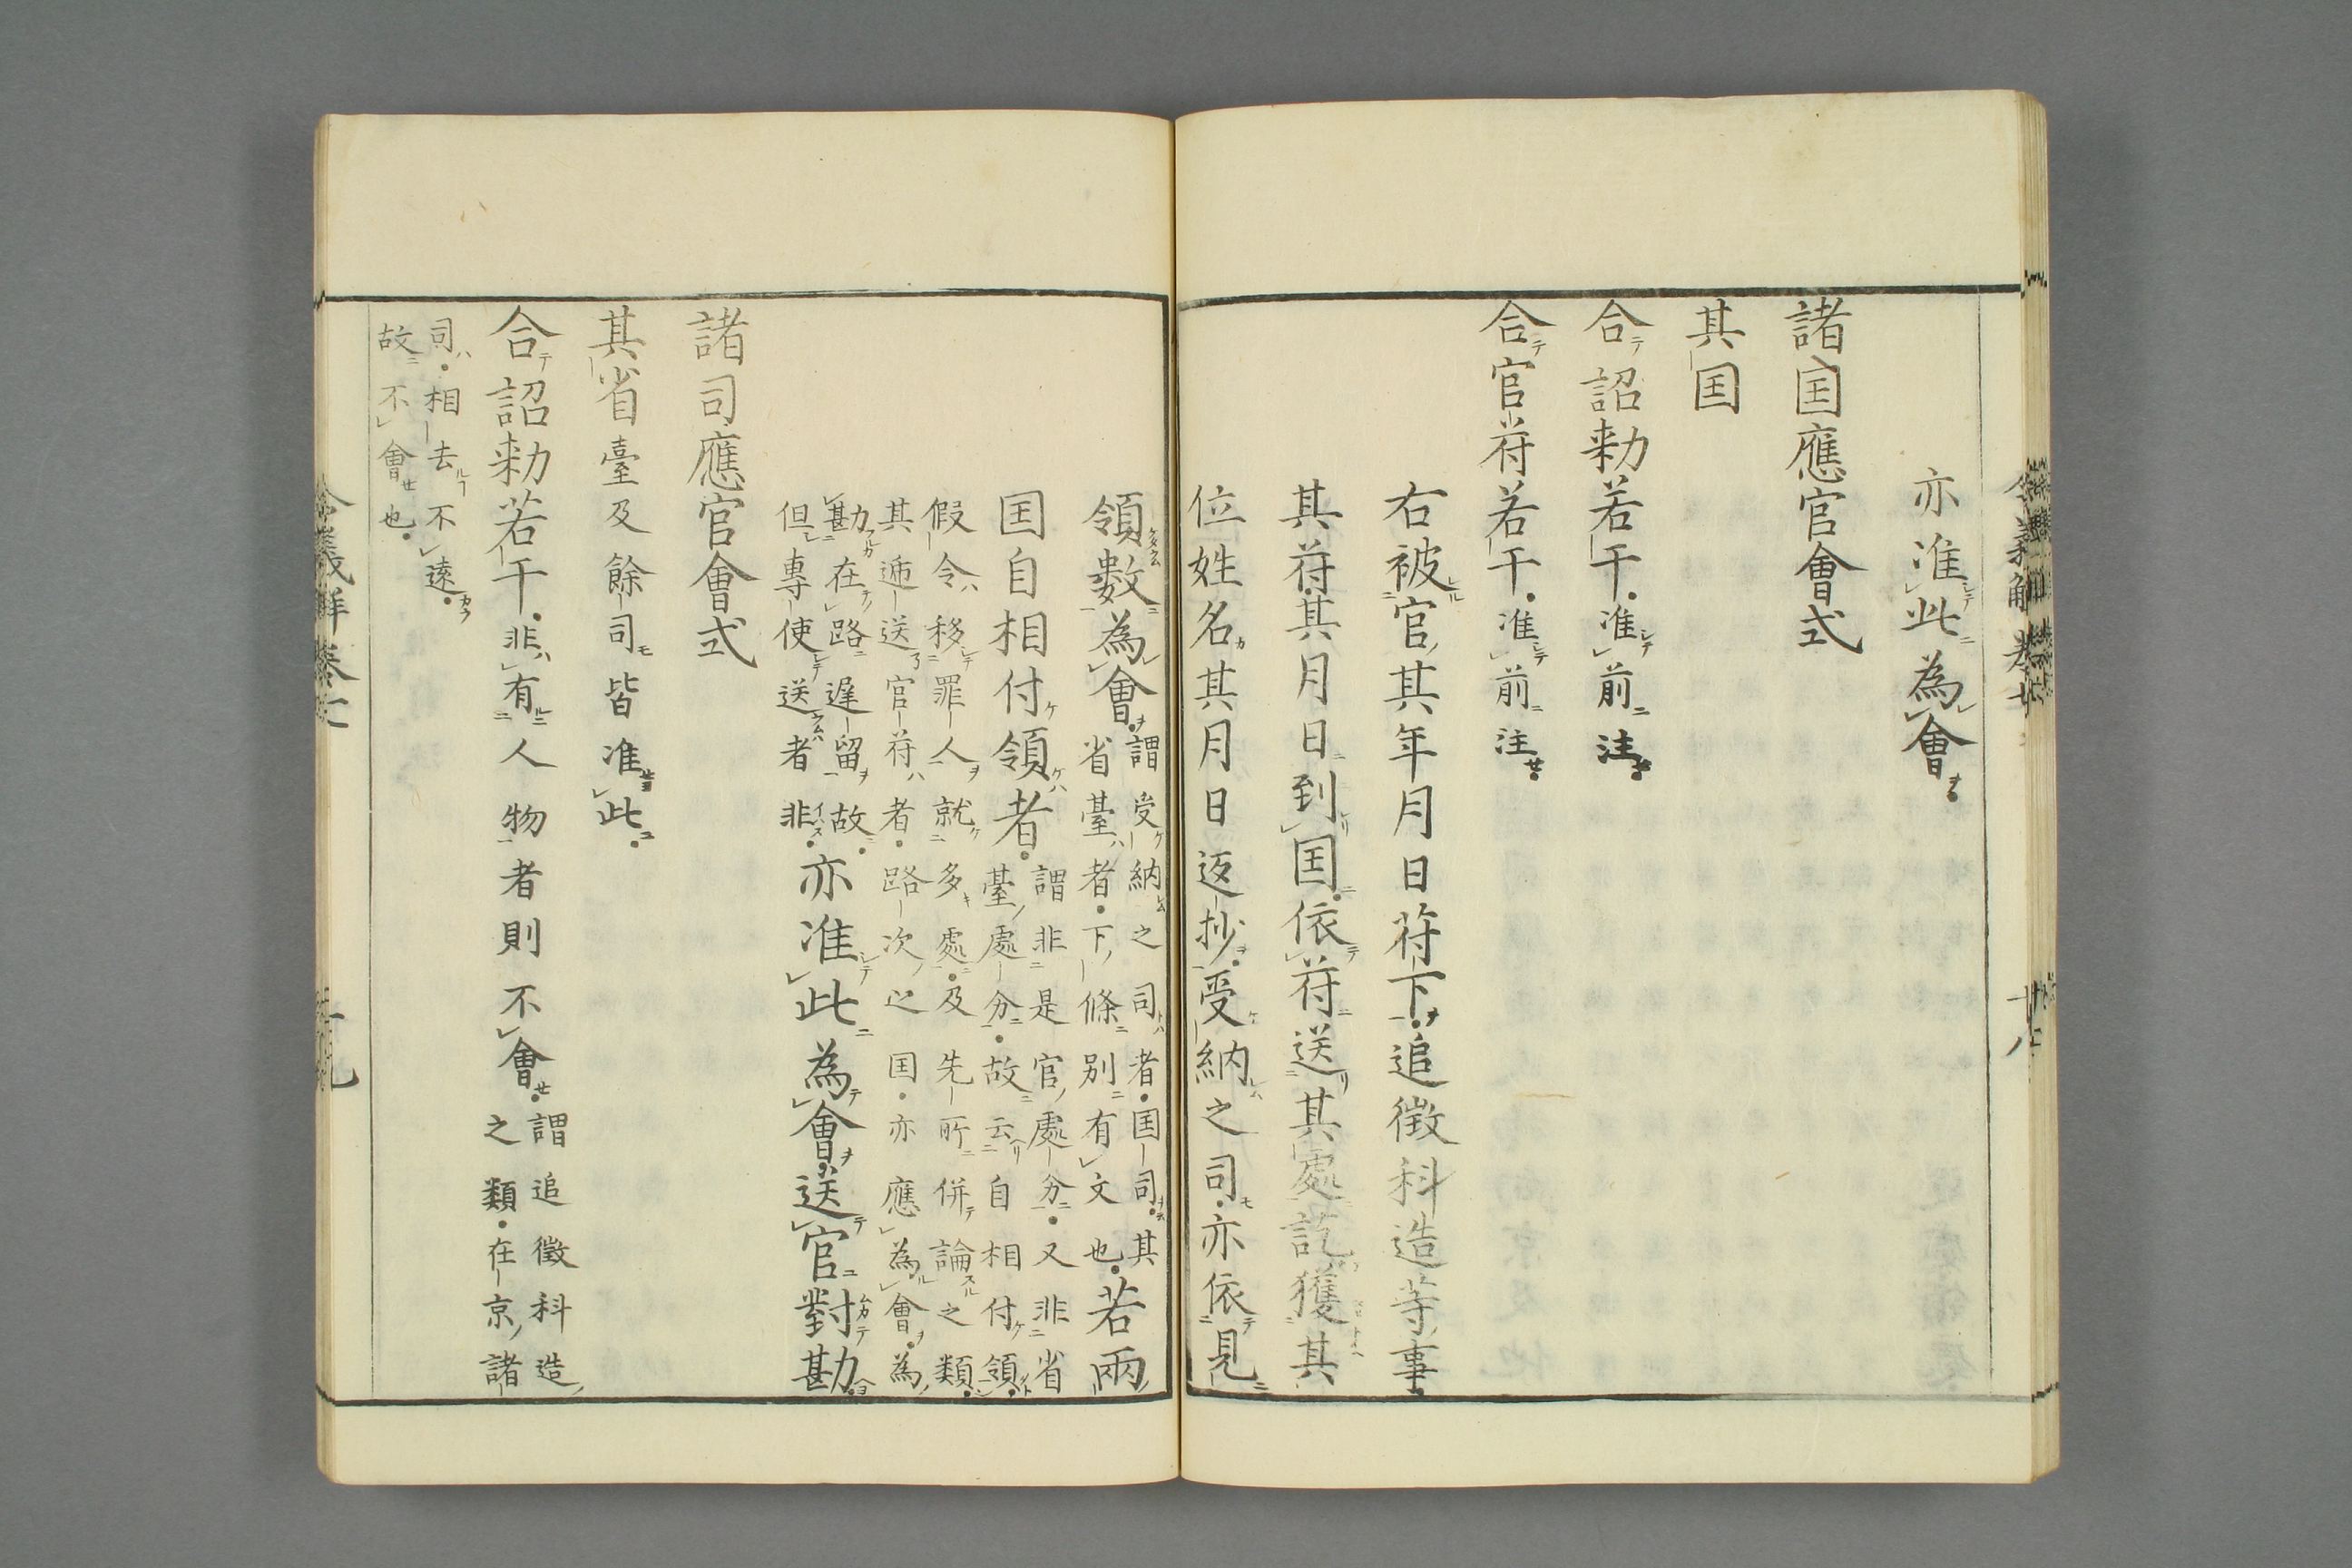 亦准此為會
諸囯應官會式
其囯
合詔勅若干准前注
合官苻若干准前注
右被官其年月日苻下追徴科造等事
其苻其月日到囯依苻送其處訖獲其
位姓名其月日返抄受納之司亦依見
領數為會謂受納之司者囯司其
省臺者下條別有文也若兩
囯自相付領者謂非是官處分又非省
臺處分故云自相付領
假令移罪人就多處及先所併論之類
其逓送官苻者路次之囯亦應為會為
勘在路遅留故
但專使送者非亦准此為會送官對勘
諸司應官會式
其省臺及餘司皆准此
合詔勅若干非有人物者則不會謂追徴科造
之類在京諸
司相去不遠
故不會也